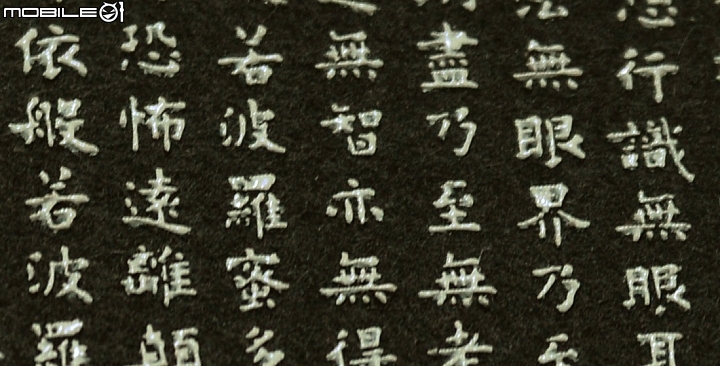 MOBILE01
想行識無眼耳
法無眼界乃至
盡乃至無老
無智亦無得
若波羅蜜多
恐怖遠離顛
依般若波羅